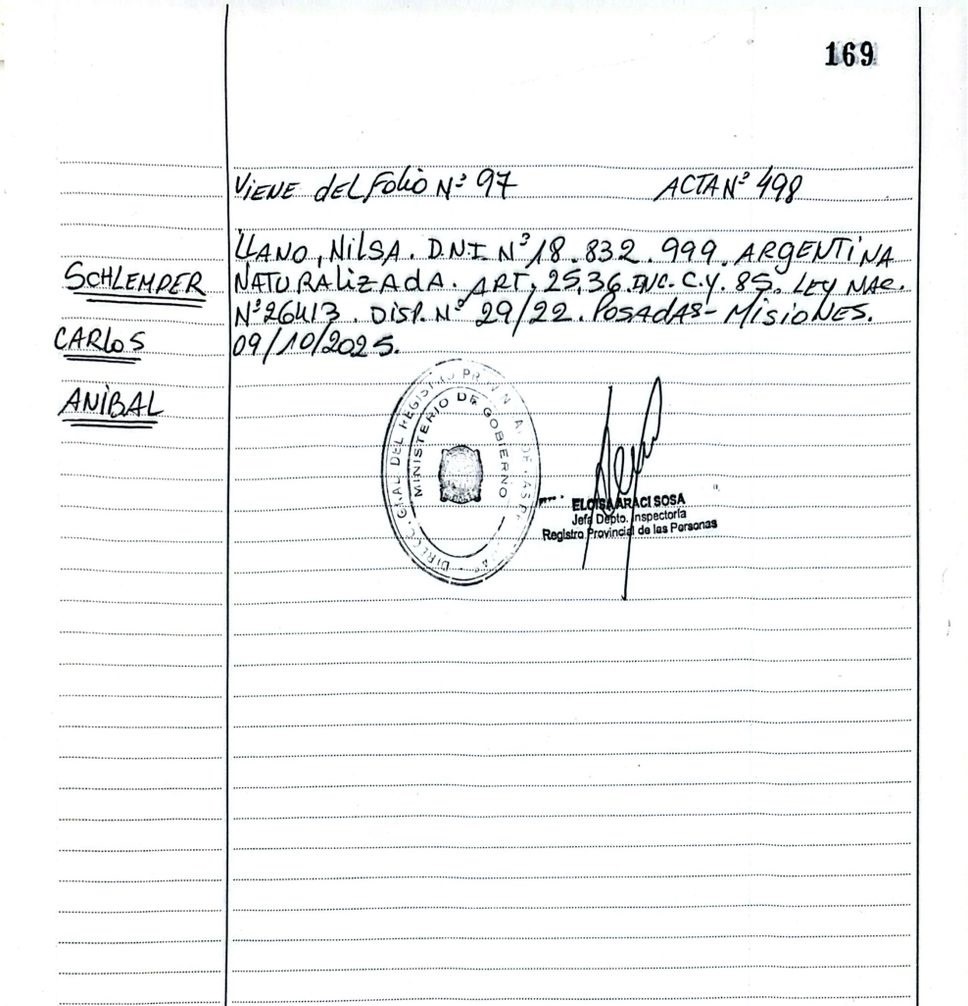 169
VIENE del Folio Nº 97 ACTA Nº 498
LLANO, NILSA. D.N.I. Nº 18.832.999. ARGENTINA
SCHLEMPER
NATURALIZADA. ART, 25,36. INC. C.Y. 85. LEY NAC.
Nº 26413. DISP. Nº 29/22. POSADAS- MISIONES.
CARLOS
09/10/2025.
ANÍBAL
MINISTERIO DE GOBIERNO
ELOISA ARACI SOSA
Jefa Depto. Inspectoría
Registro Provincial de las Personas